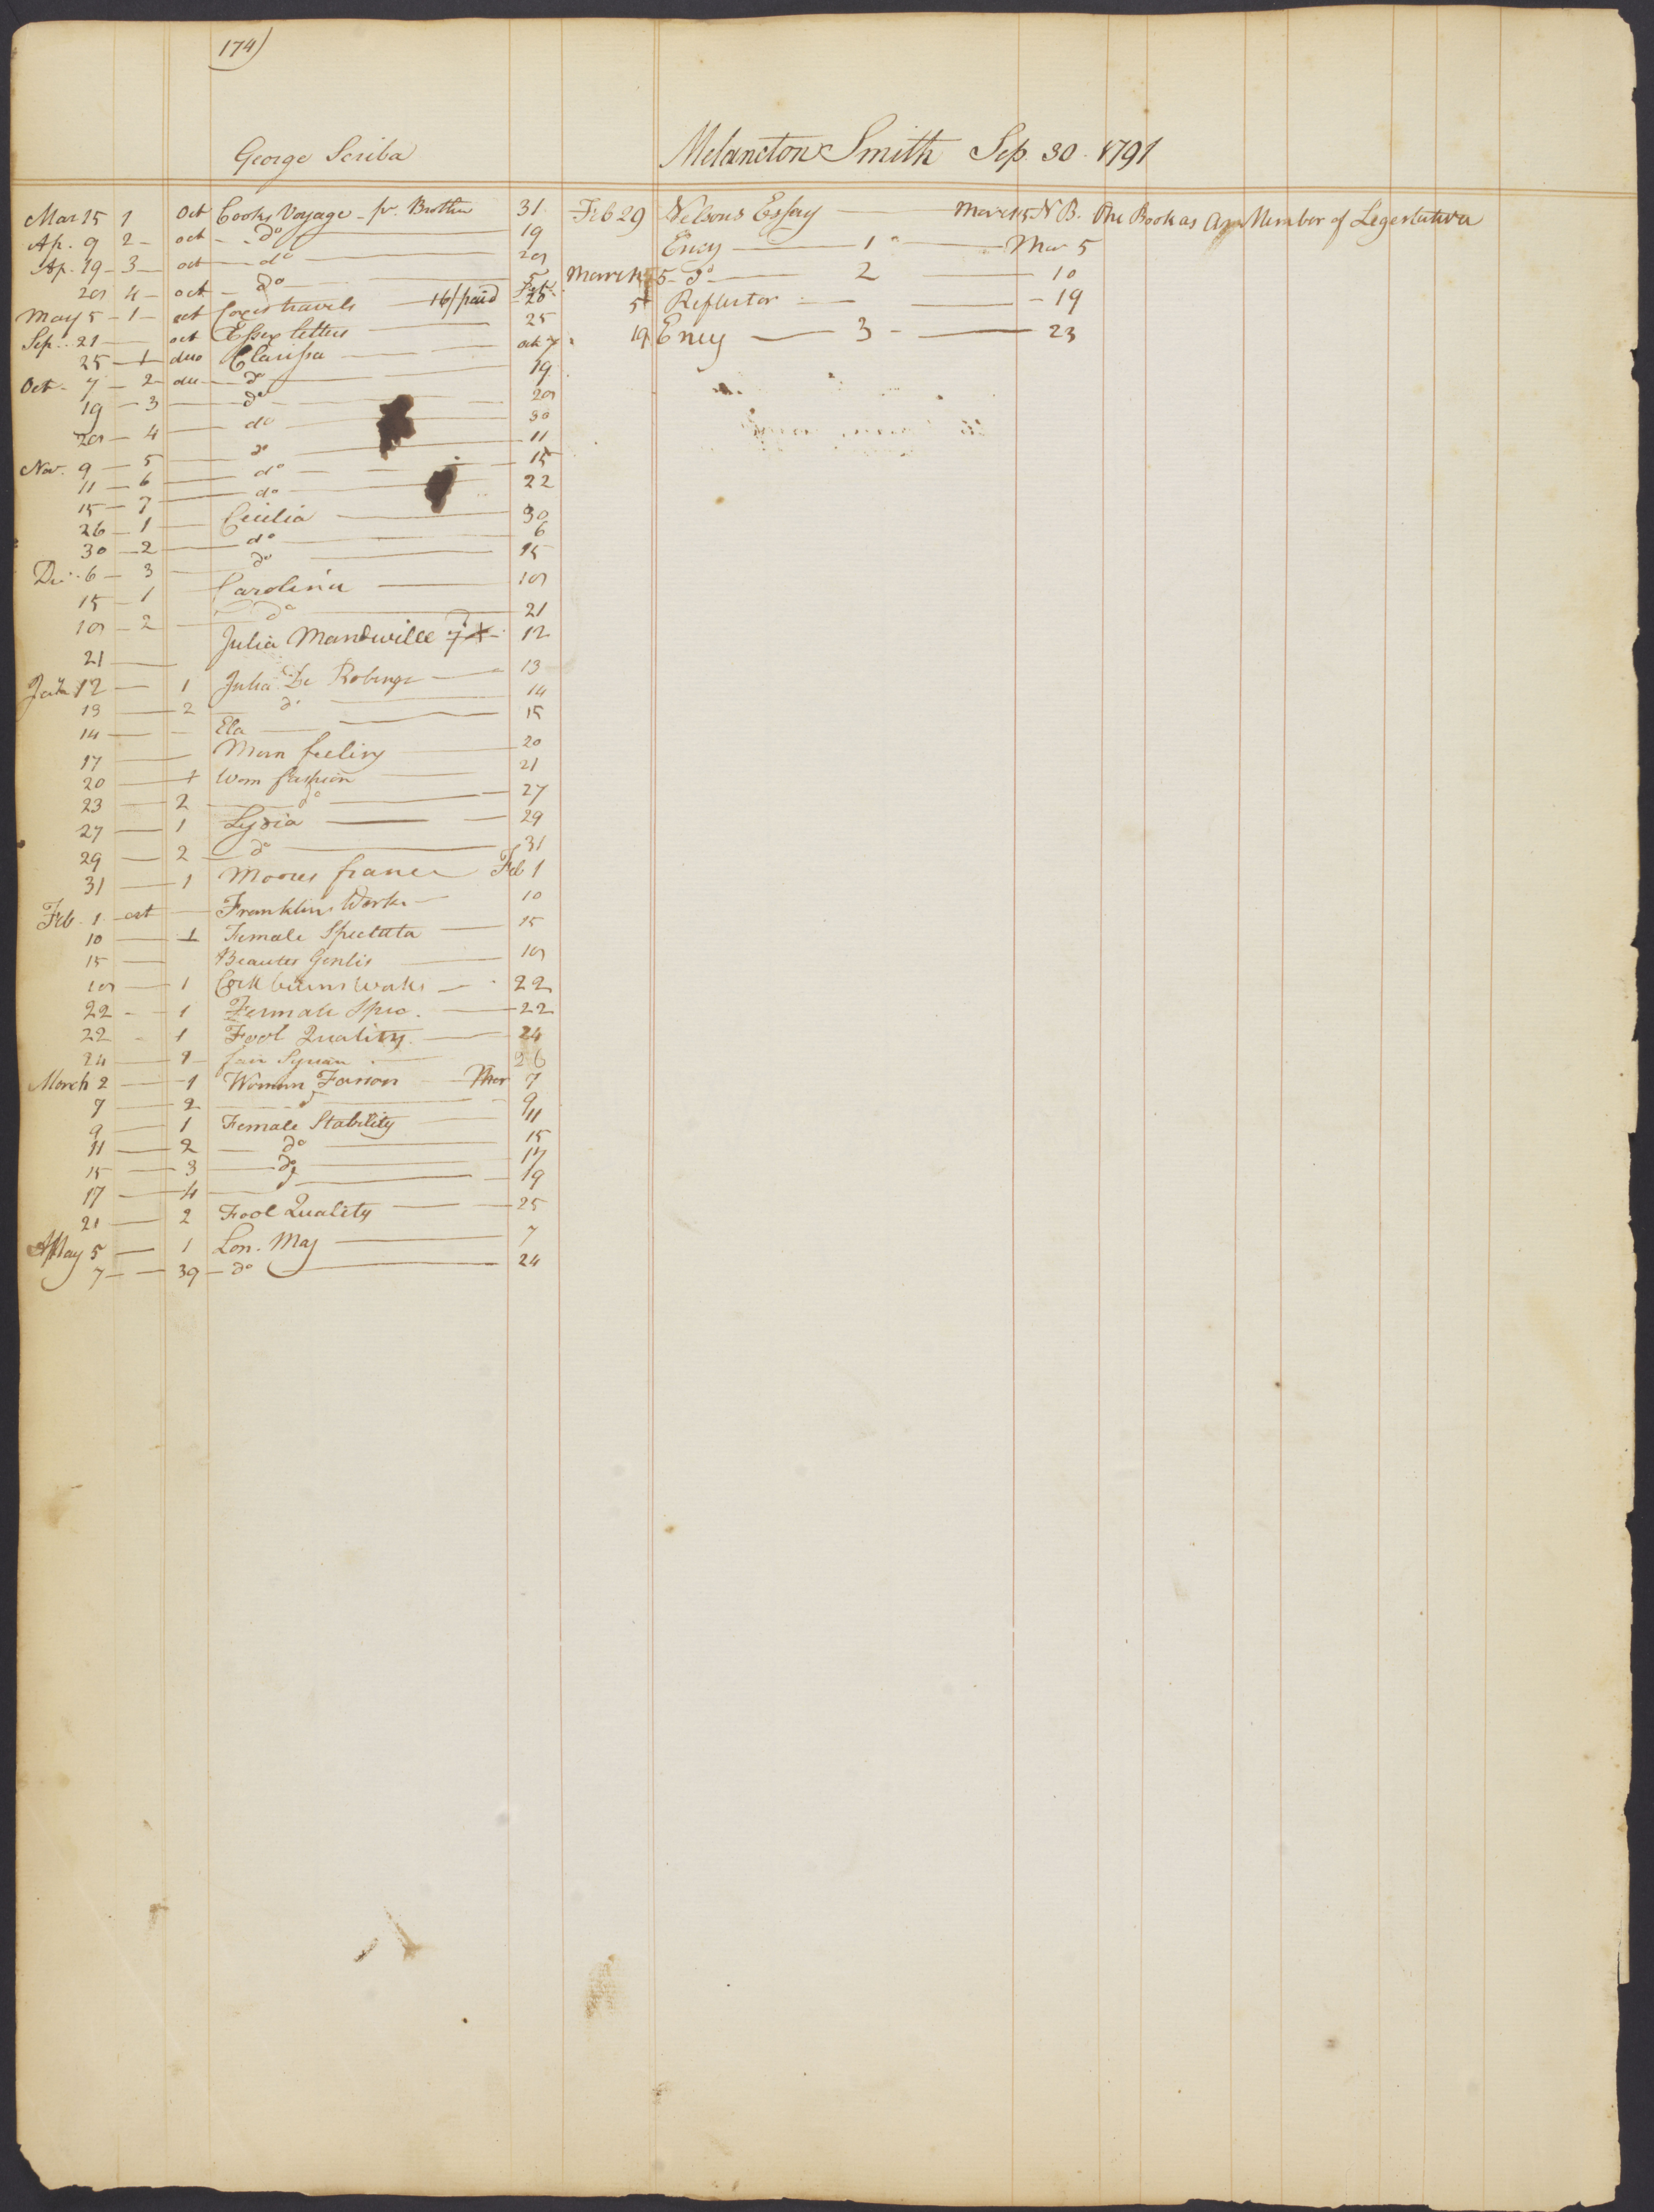 174)
George Scriba
Mar 15 1 Oct Cooks Voyage - pr. Brother 31
Ap. 9 2 - oct - do 19
Ap. 19 - 3 - oct - do 28
28 4 - oct - do 5
May 5 - 1 - oct Coxes travels 16/paid
Sep. 21 - oct Essex letters 25
25 - 1 duo Clarissa oct 7
Oct. 7 - 2 duo - do 19
19 - 3 - do 28
28 - 4 - do 30
Nov. 9 - 5 - do 11
11 - 6 - do 15
15 - 7 - do 22
26 - 1 - Cecilia 30
30 - 2 - do 6
De. 6 - 3 - do 15
15 - 1 Carolina 18
18 - 2 - do 21
21 - Julia Mandeville 12
12 - 1 Julia De Robinge 13
13 - 2 - do 14
14 - Ela 15
17 - Man feeling 20
20 - 1 Wom fashion 21
23 - 2 - do 27
27 - 1 Lydia 29
29 - 2 - do 31
31 - 1 Moores france Feb 1
Feb. 1 - oct - Franklins Works 10
10 - 1 Female Spectata 15
15 - Beauties Genlis 18
18 - 1 Cockburns Works 22
22 - 1 Female Spec. 22
22 - 1 Fool Quality. 24
24 - 1 fair Syrian 26
March 2 - 1 Woman Fasion Mar 7
7 - 2 - do 9
9 - 1 Female Stability 11
11 - 2 - do 15
15 - 3 - do 17
17 - 4 - do 19
21 - 2 Fool Quality 25
May 5 - 1 Lon. Mag 7
7 - 39 - do 24
Melancton Smith Sep. 30. 1791
Feb 29 Nelsons Essay March 5 N B. the Book as a Member of Legeslativa
Ency 1 Mar 5
March 5 - do 2 10
5 Reflector 19
19 Ency 3 - 23